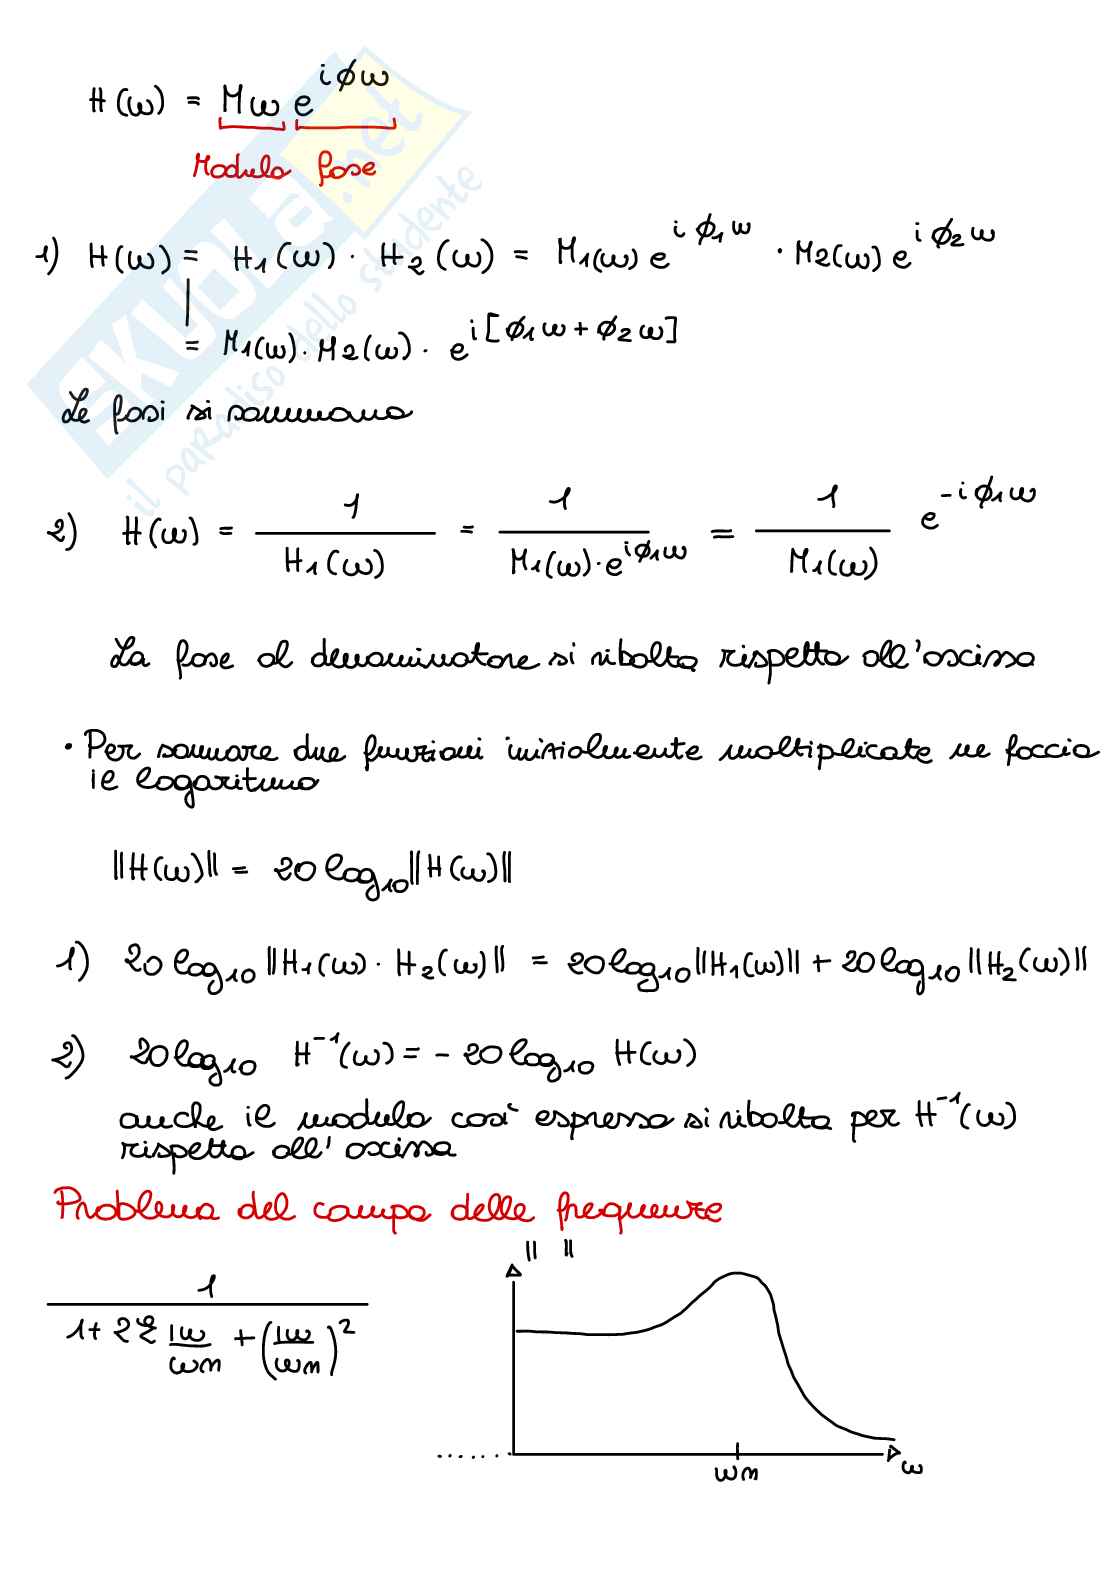 H(ω) = Mω e^{iϕω}
Modulo fase
1) H(ω) = H₁(ω) · H₂(ω) = M₁(ω) e^{iϕ₁ω} · M₂(ω) e^{iϕ₂ω}
= M₁(ω) · M₂(ω) · e^{i[ϕ₁ω + ϕ₂ω]}
Le fasi si sommano
2) H(ω) = 1/H₁(ω) = 1/(M₁(ω) · e^{iϕ₁ω}) = 1/M₁(ω) e^{-iϕ₁ω}
La fase al denominatore si ribalta rispetto all'ascissa
• Per sommare due funzioni inizialmente moltiplicate ne faccio
il logaritmo
||H(ω)|| = 20 log₁₀||H(ω)||
1) 20 log₁₀ ||H₁(ω) · H₂(ω)|| = 20 log₁₀||H₁(ω)|| + 20 log₁₀ ||H₂(ω)||
2) 20 log₁₀ H⁻¹(ω) = - 20 log₁₀ H(ω)
anche il modulo così espresso si ribalta per H⁻¹(ω)
rispetto all'ascissa
Problema del campo delle frequenze
|| ||
1/(1 + 2ξ iω/ωn + (iω/ωn)²)
ωn
ω
SKUOLA.net
il paradiso dello studente